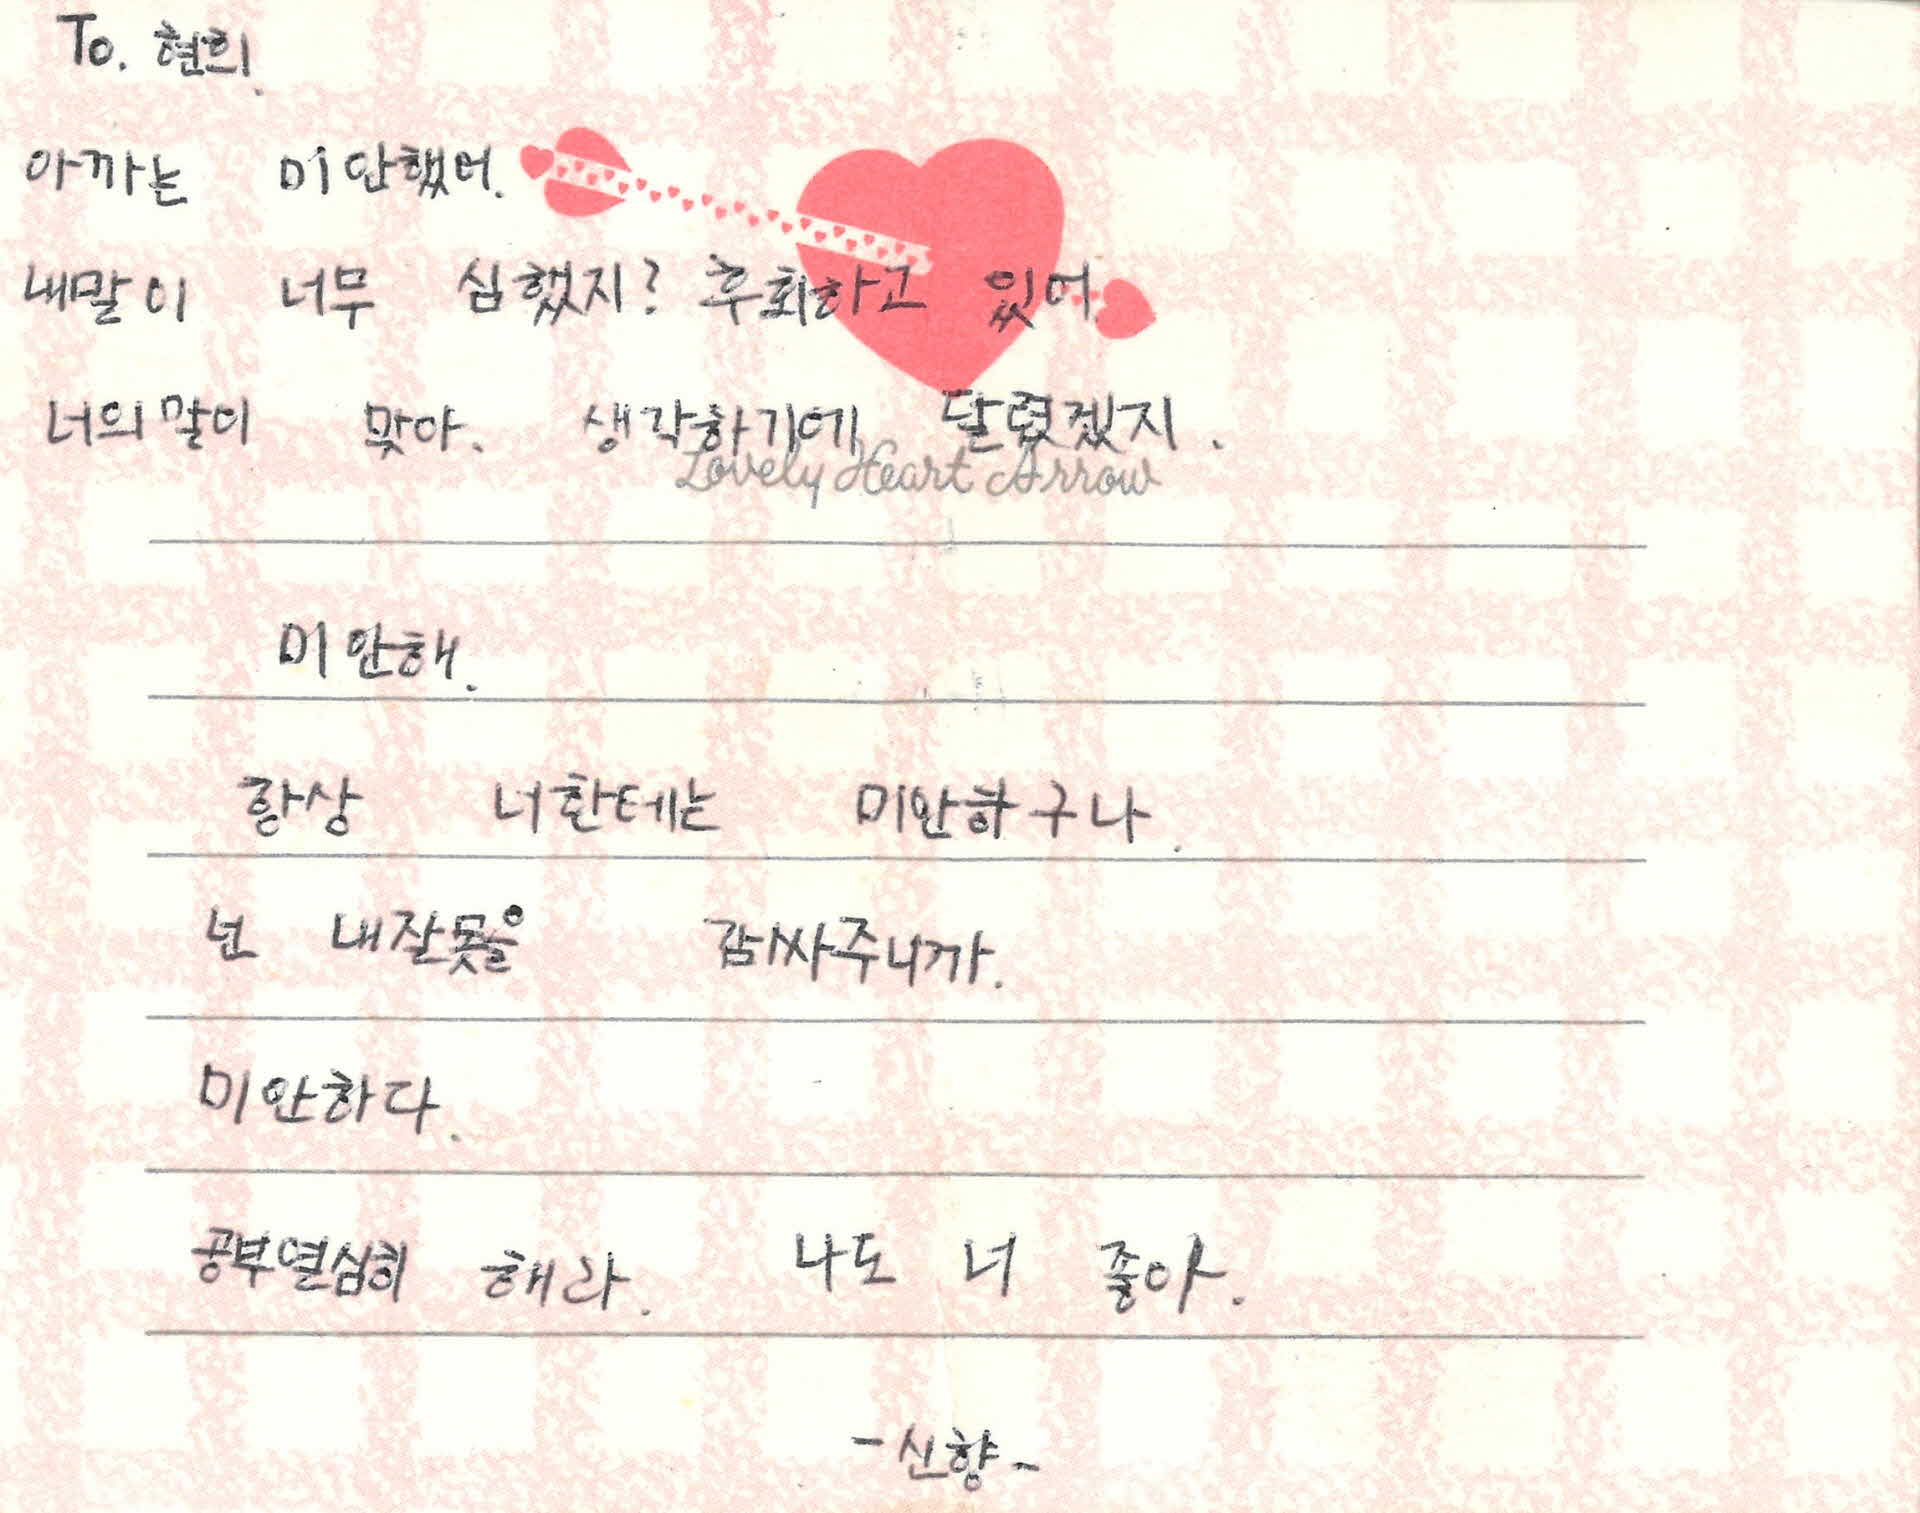 To. 현희.
아까는 미안했어.
내말이 너무 심했지? 후회하고 있어.
너의말이 맞아. 생각하기에 달렸겠지.
Lovely Heart Arrow
미안해.
항상 너한테는 미안하구나.
넌 내잘못을 감싸주니까.
미안하다.
공부열심히 해라. 나도 너 좋아.
-신향-